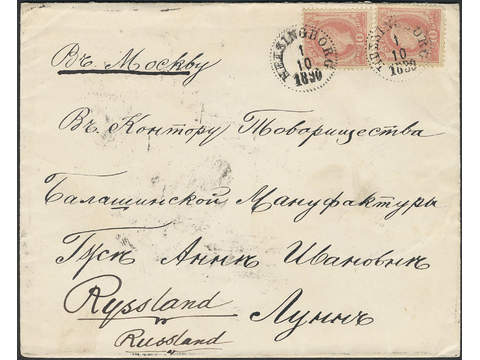 HELSINGBORG 1 10 1890
HELSINGBORG 1 10 1890
10
10
Въ Москву
Въ Контору Товарищества
Балашинской Мануфактуры
Густ Аннѣ Ивановнѣ
Ryssland
Russland
Луннъ